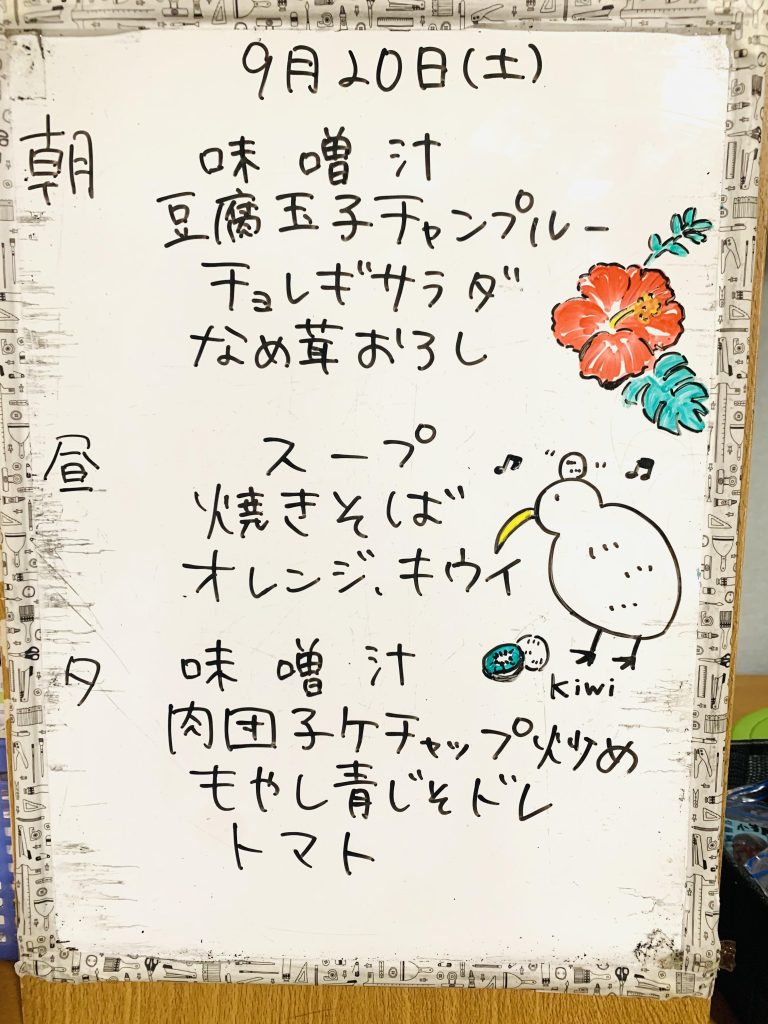 9月20日(土)
朝
味噌汁
豆腐玉子チャンプルー
チョレギサラダ
なめ茸おろし
昼
スープ
焼きそば
オレンジ、キウイ
kiwi
夕
味噌汁
肉団子ケチャップ炒め
もやし青じそドレ
トマト